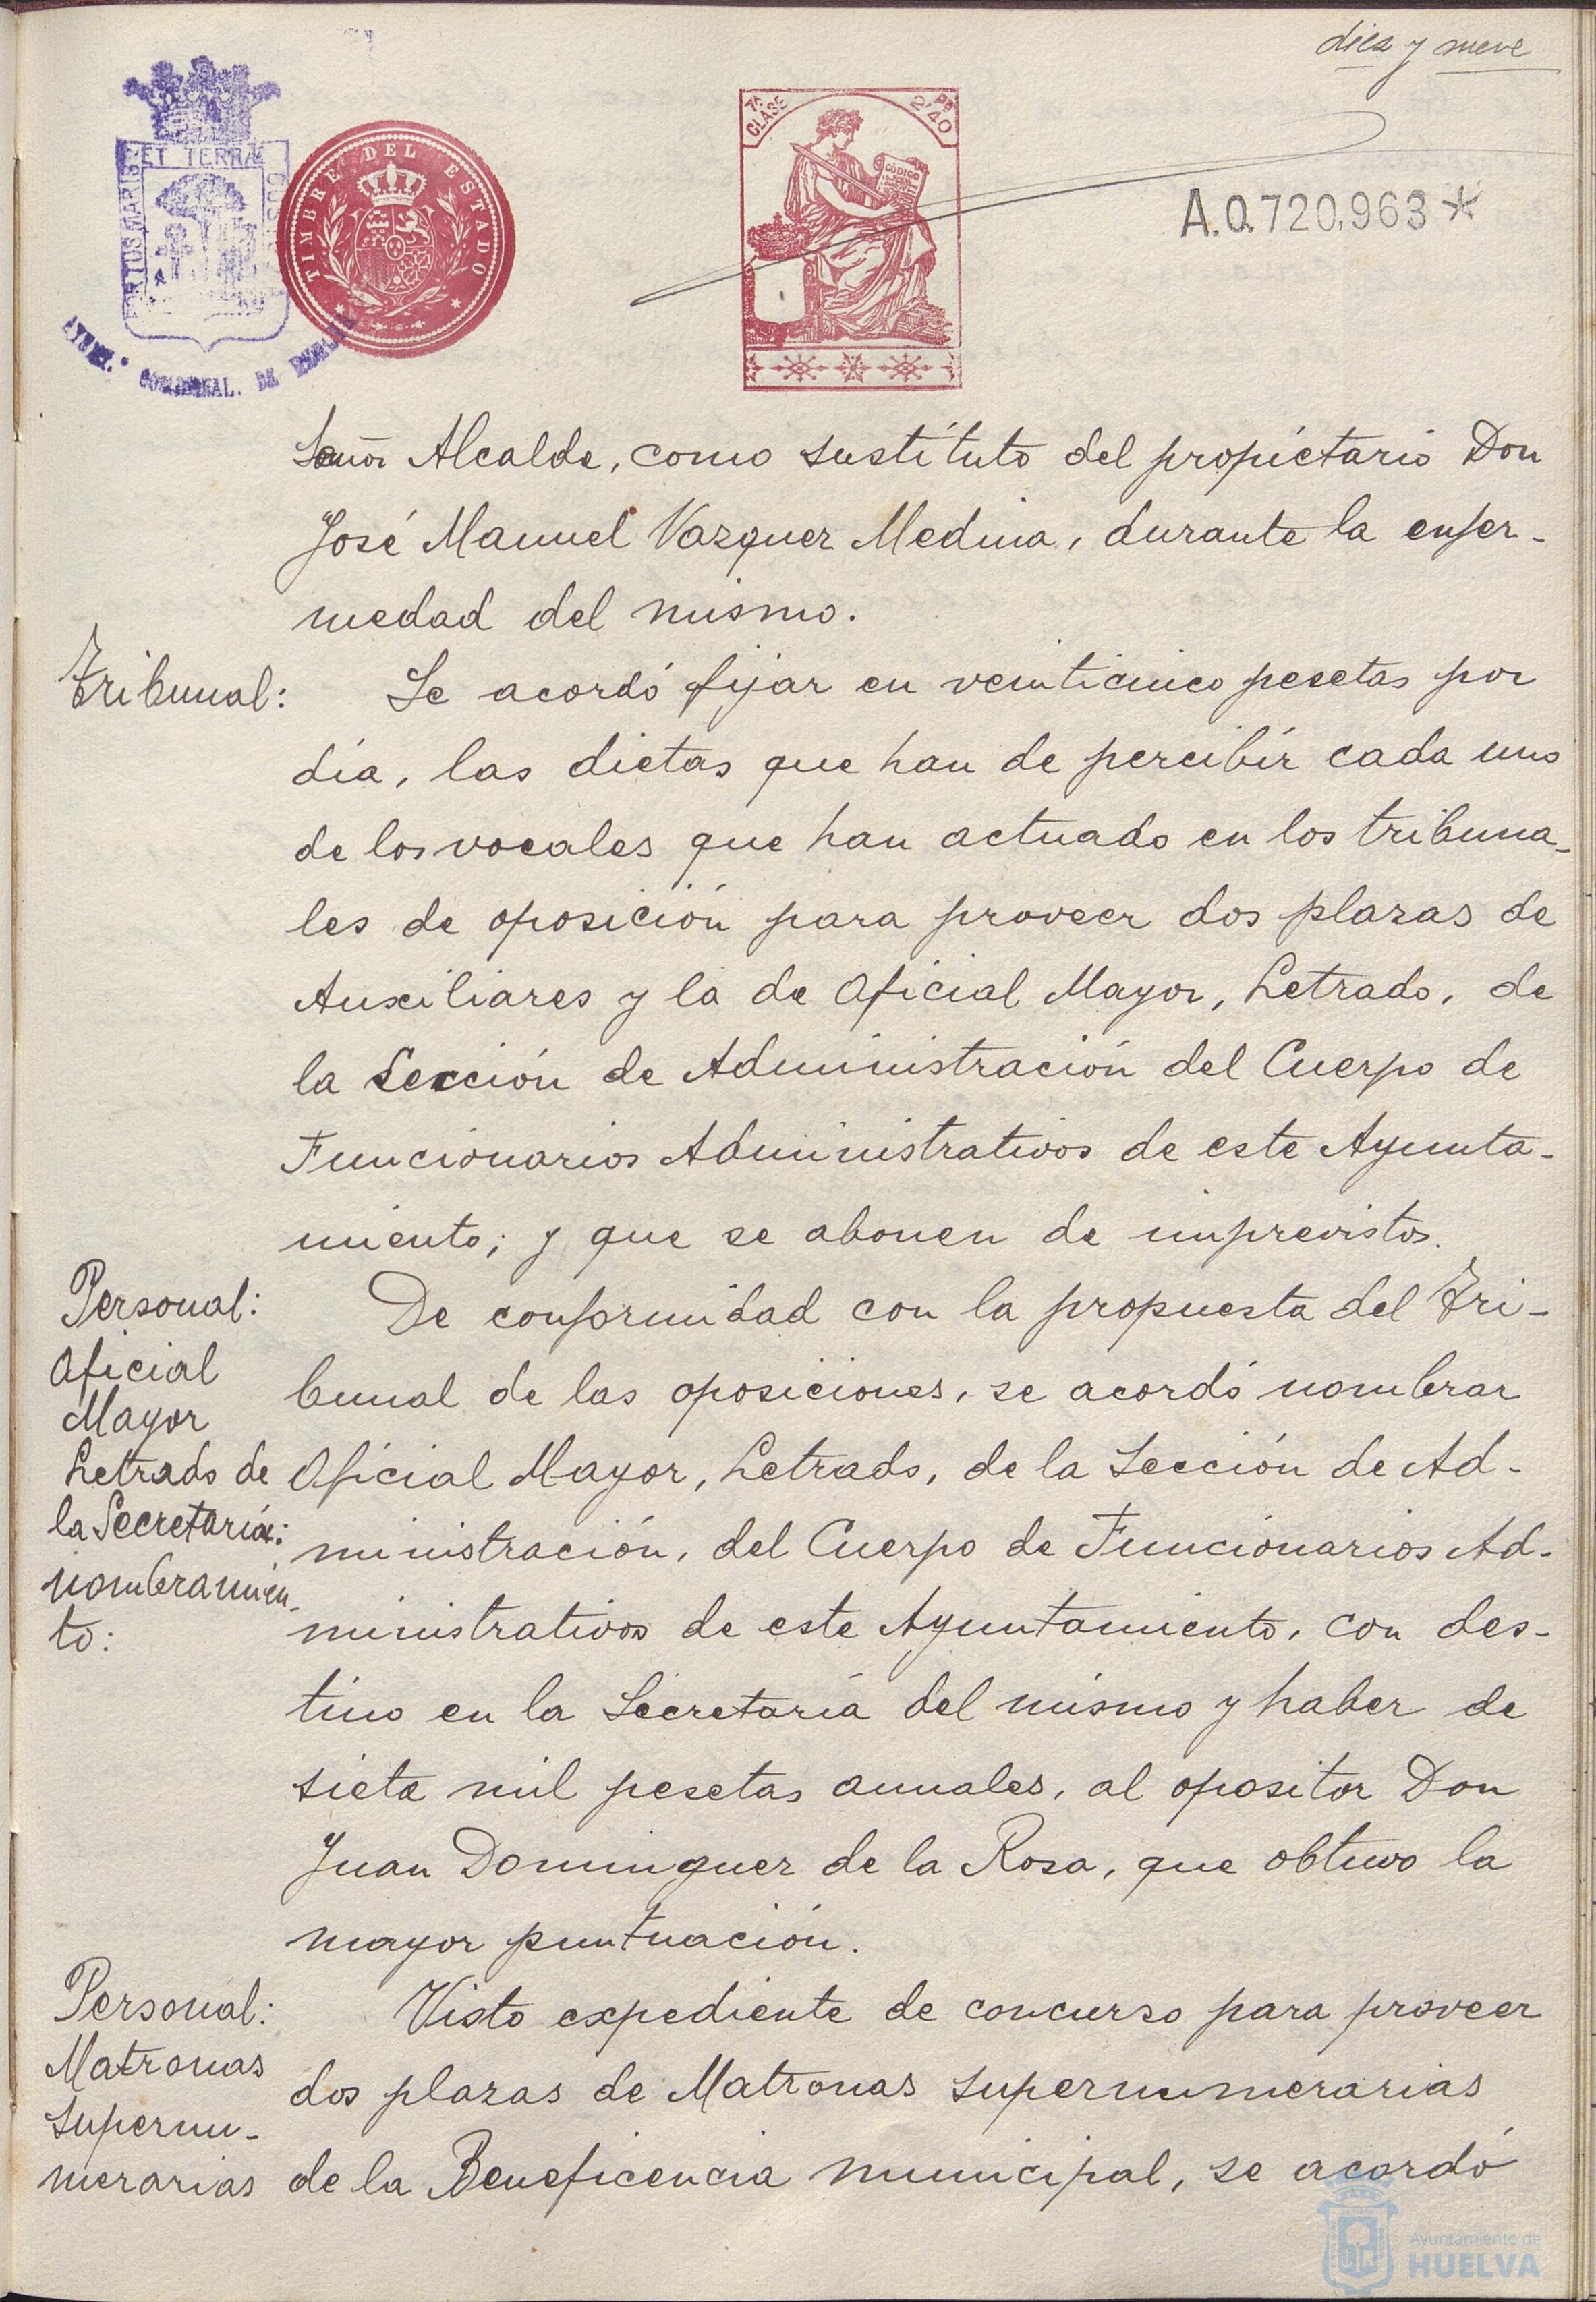 diez y nueve
7ª CLASE
2'40
CÓDIGO
PORTUS MARIS ET TERRÆ CUSTODIA
TIMBRE DEL ESTADO
A.0.720,963*
Señor Alcalde, como sustituto del propietario Don
José Manuel Vazquez Medina, durante la enfer-
medad del mismo.
Tribunal:
Se acordó fijar en veinticinco pesetas por
día, las dietas que han de percibir cada uno
de los vocales que han actuado en los tribuna-
les de oposición para proveer dos plazas de
Auxiliares y la de Oficial Mayor, Letrado, de
la Sección de Administración del Cuerpo de
Funcionarios Administrativos de este Ayunta-
miento; y que se abonen de imprevistos.
Personal:
Oficial
Mayor
Letrado de
la Secretaría:
nombramien-
to:
De conformidad con la propuesta del Tri-
bunal de las oposiciones, se acordó nombrar
Oficial Mayor, Letrado, de la Sección de Ad-
ministración, del Cuerpo de Funcionarios Ad-
ministrativos de este Ayuntamiento, con des-
tino en la Secretaría del mismo y haber de
siete mil pesetas anuales, al opositor Don
Juan Dominguez de la Rosa, que obtuvo la
mayor puntuación.
Personal:
Matronas
supernu-
merarias
Visto expediente de concurso para proveer
dos plazas de Matronas supernumerarias
de la Beneficencia municipal, se acordó
Ayuntamiento de
HUELVA